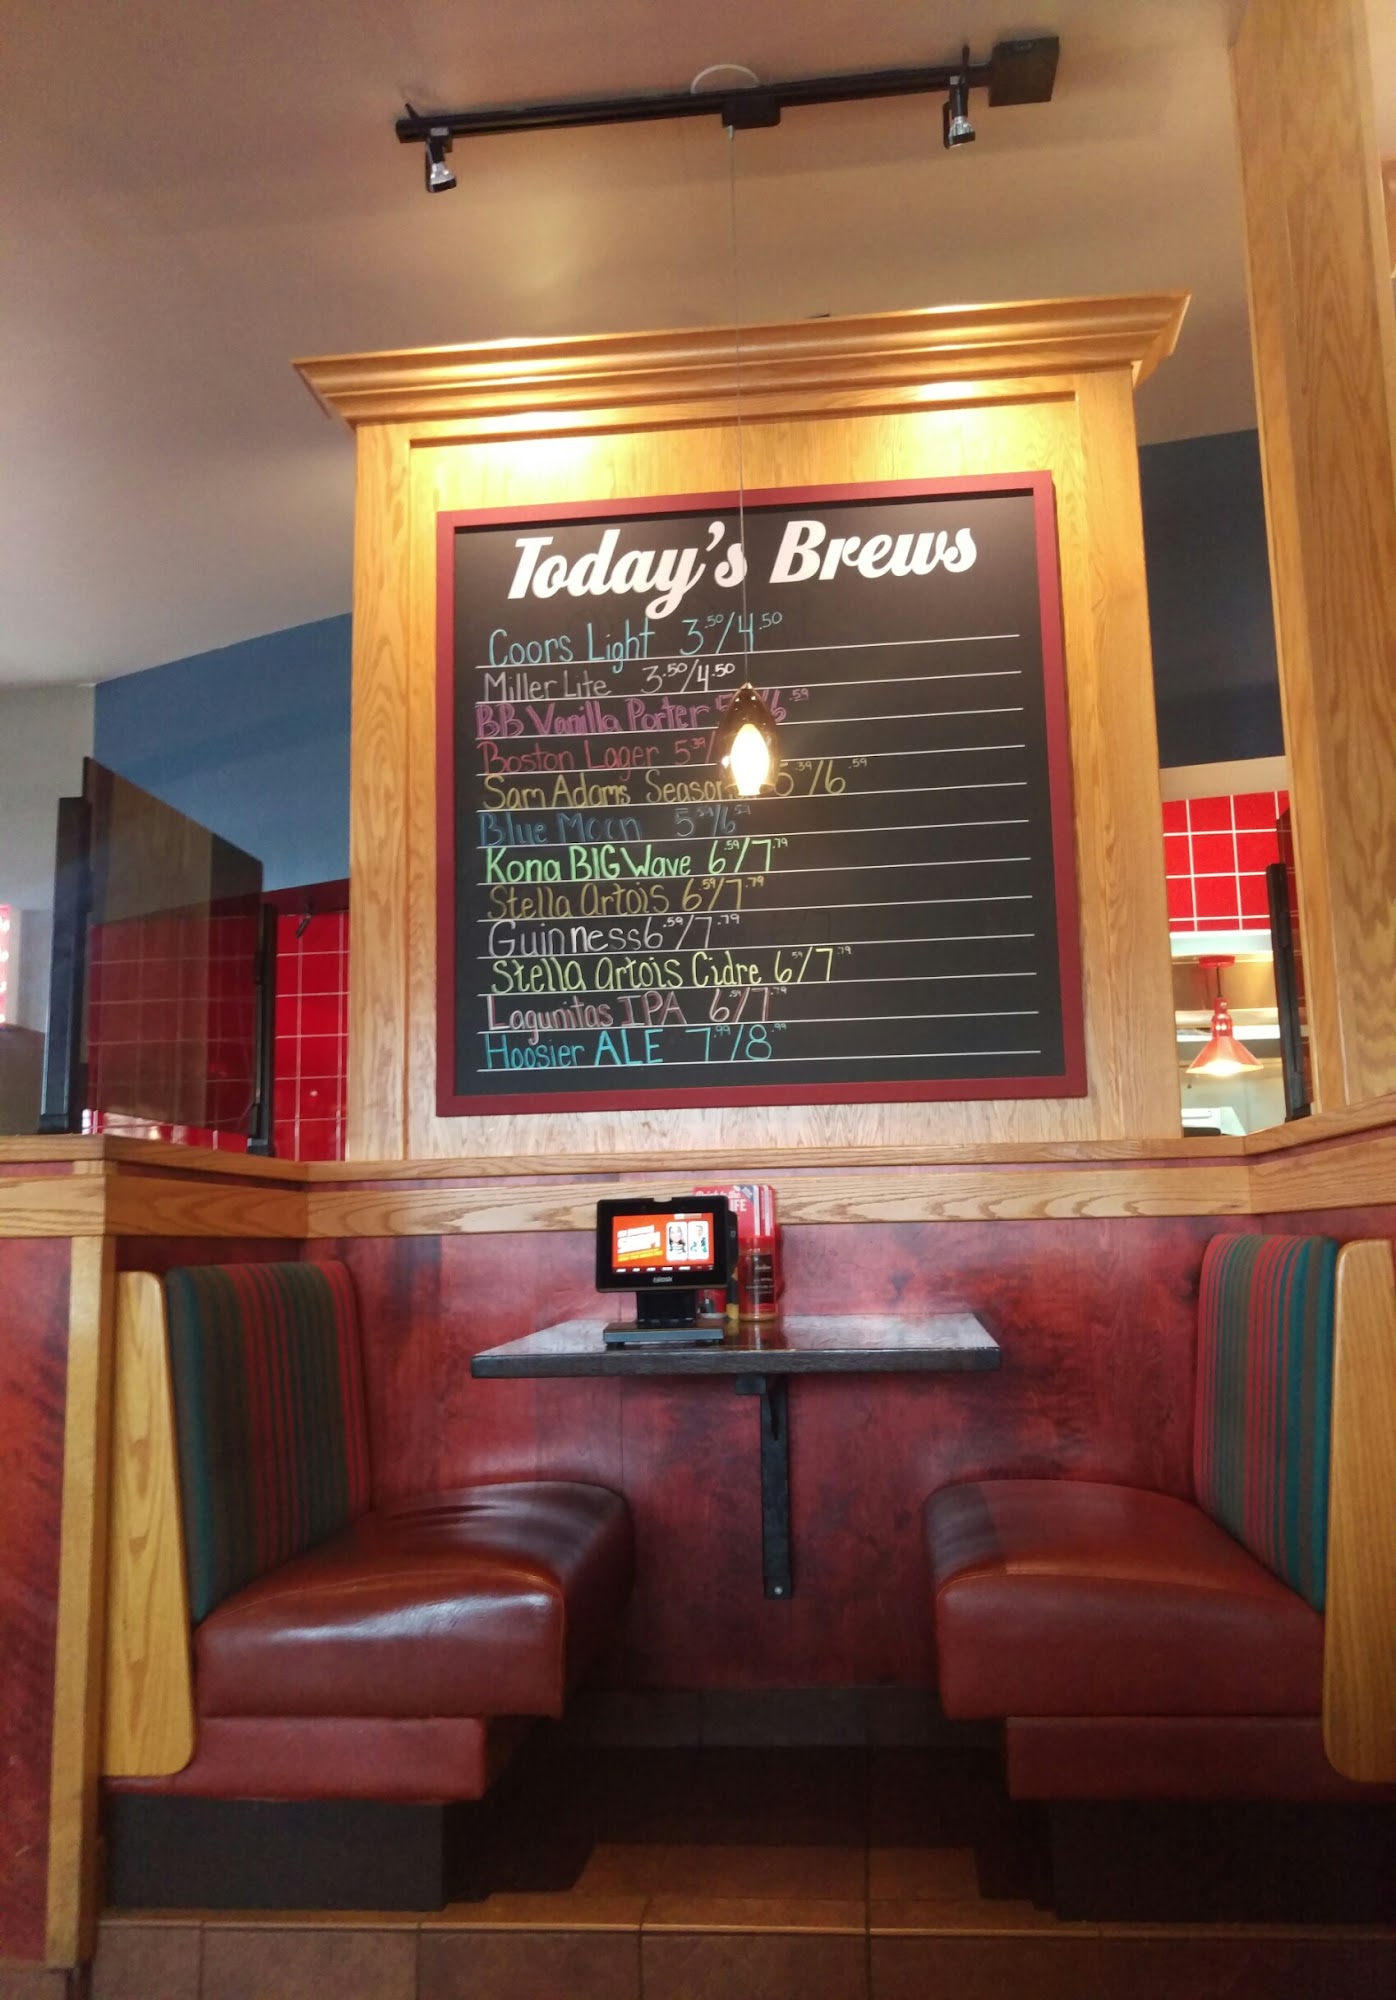 Today's Brews
Coors Light 3.50/4.50
Miller Lite 3.50/4.50
BB Vanilla Porter 6.59
Boston Lager 5.39/
Sam Adams 5.39/6.59
Blue Moon 5.39/6.59
Kona BIG Wave 6.59/7.79
Stella Artois 6.59/7.79
Guinness 6.59/7.79
Stella Artois Cidre 6.59/7.79
Lagunitas IPA 6.59/7.79
Hoosier ALE 7.99/8.99